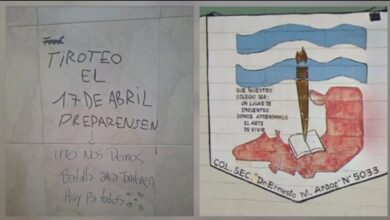 TIROTEO
EL
17 DE ABRIL
PREPARENSEN
NOS Demos
Hay Pa todos
QUE NUESTRO
COLEGIO SEA:
UN LUGAR DE
ENCUENTRO
DONDE APRENDAMOS
EL ARTE
DE VIVIR
COL. SEC. "Dr. Ernesto M. Araoz" N° 5033